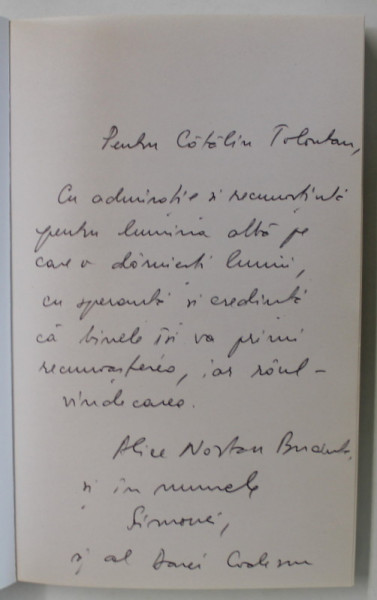 Pentru Cătălin Tolontan,
Cu admirație și recunoștință
pentru lumina altă pe
care o dăruiești lumii,
cu speranță și credință
că binele își va primi
recunoașterea, iar răul –
vindecarea.
Alice Năstase
și în numele
Simonei,
și al